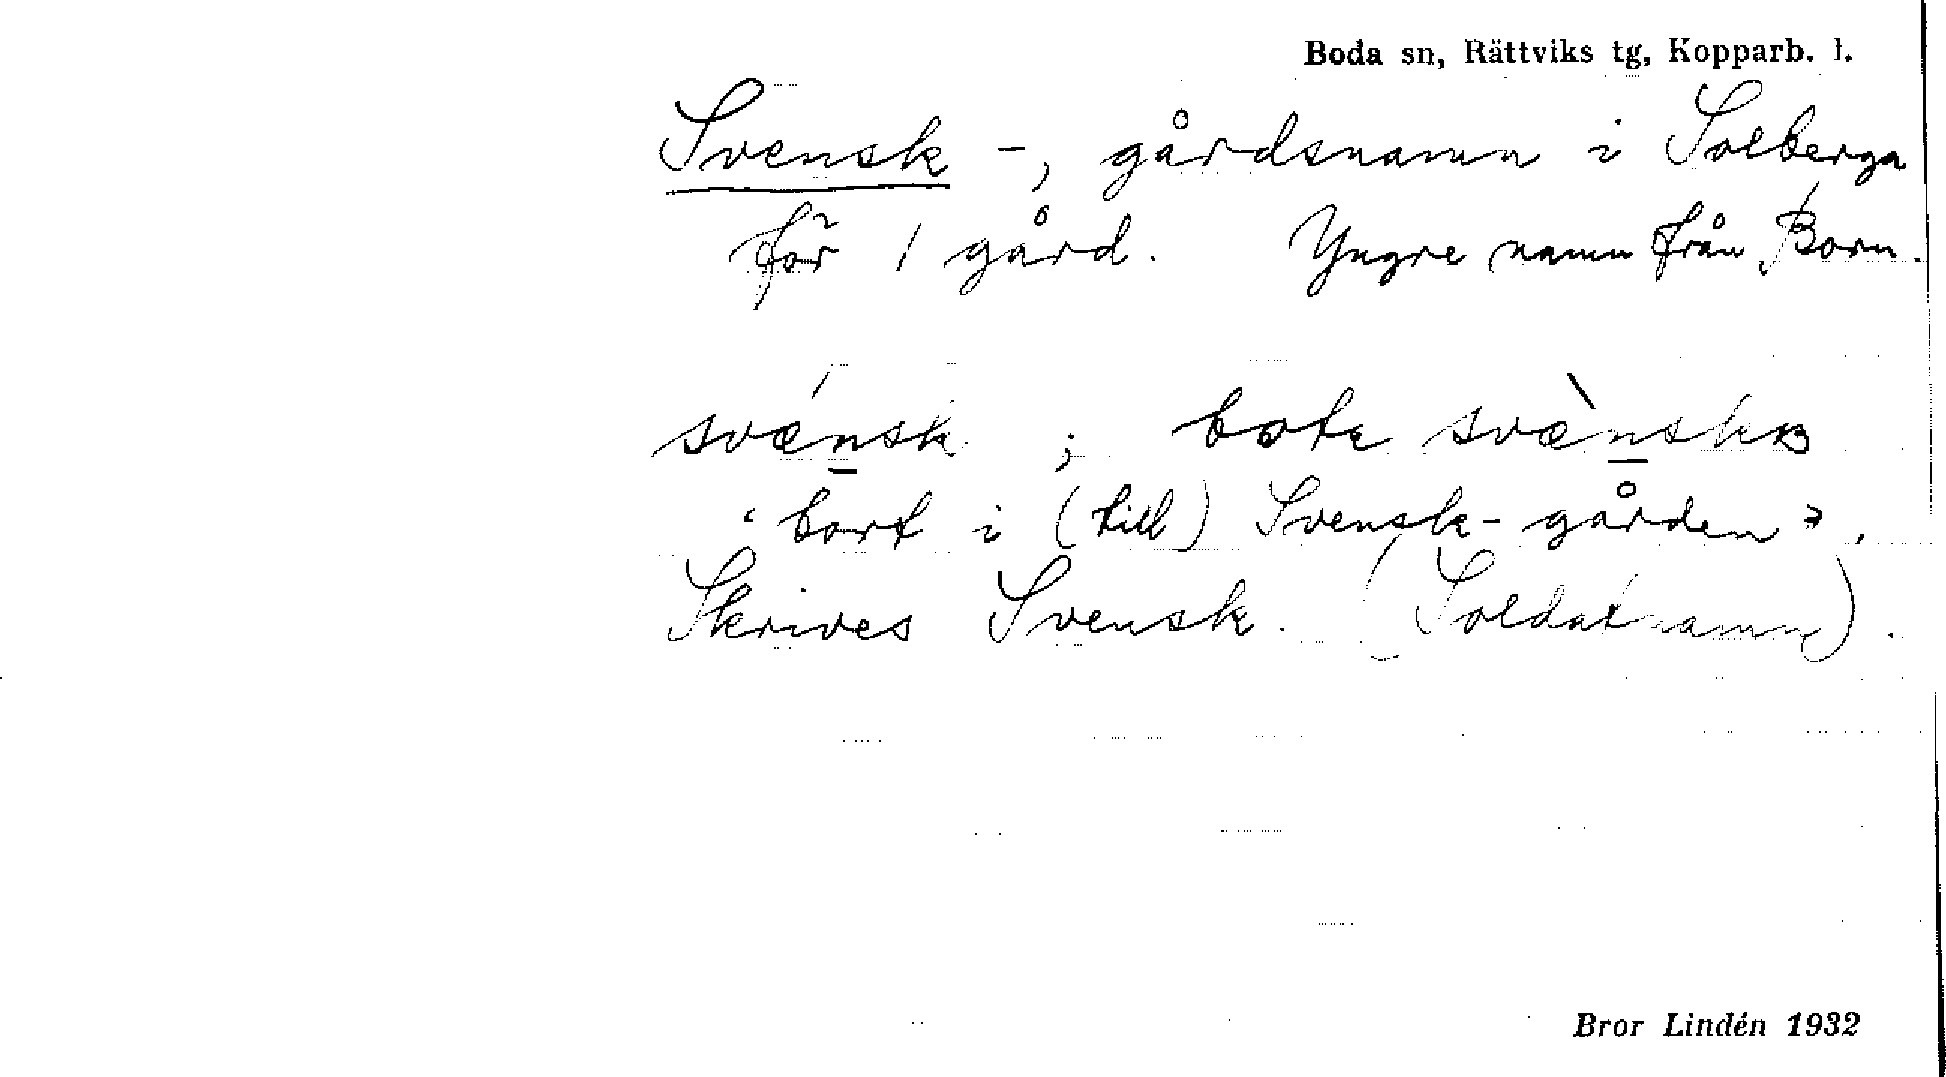 Boda sn, Rättviks tg, Kopparb. l.
Svensk -, gårdsnamn i Solberga
för 1 gård. Yngre namn från Born.
svænsk ; svænsk
"bort i (till) Svensk-gården".
Skrives Svensk. (Soldatnamn).
Bror Lindén 1932